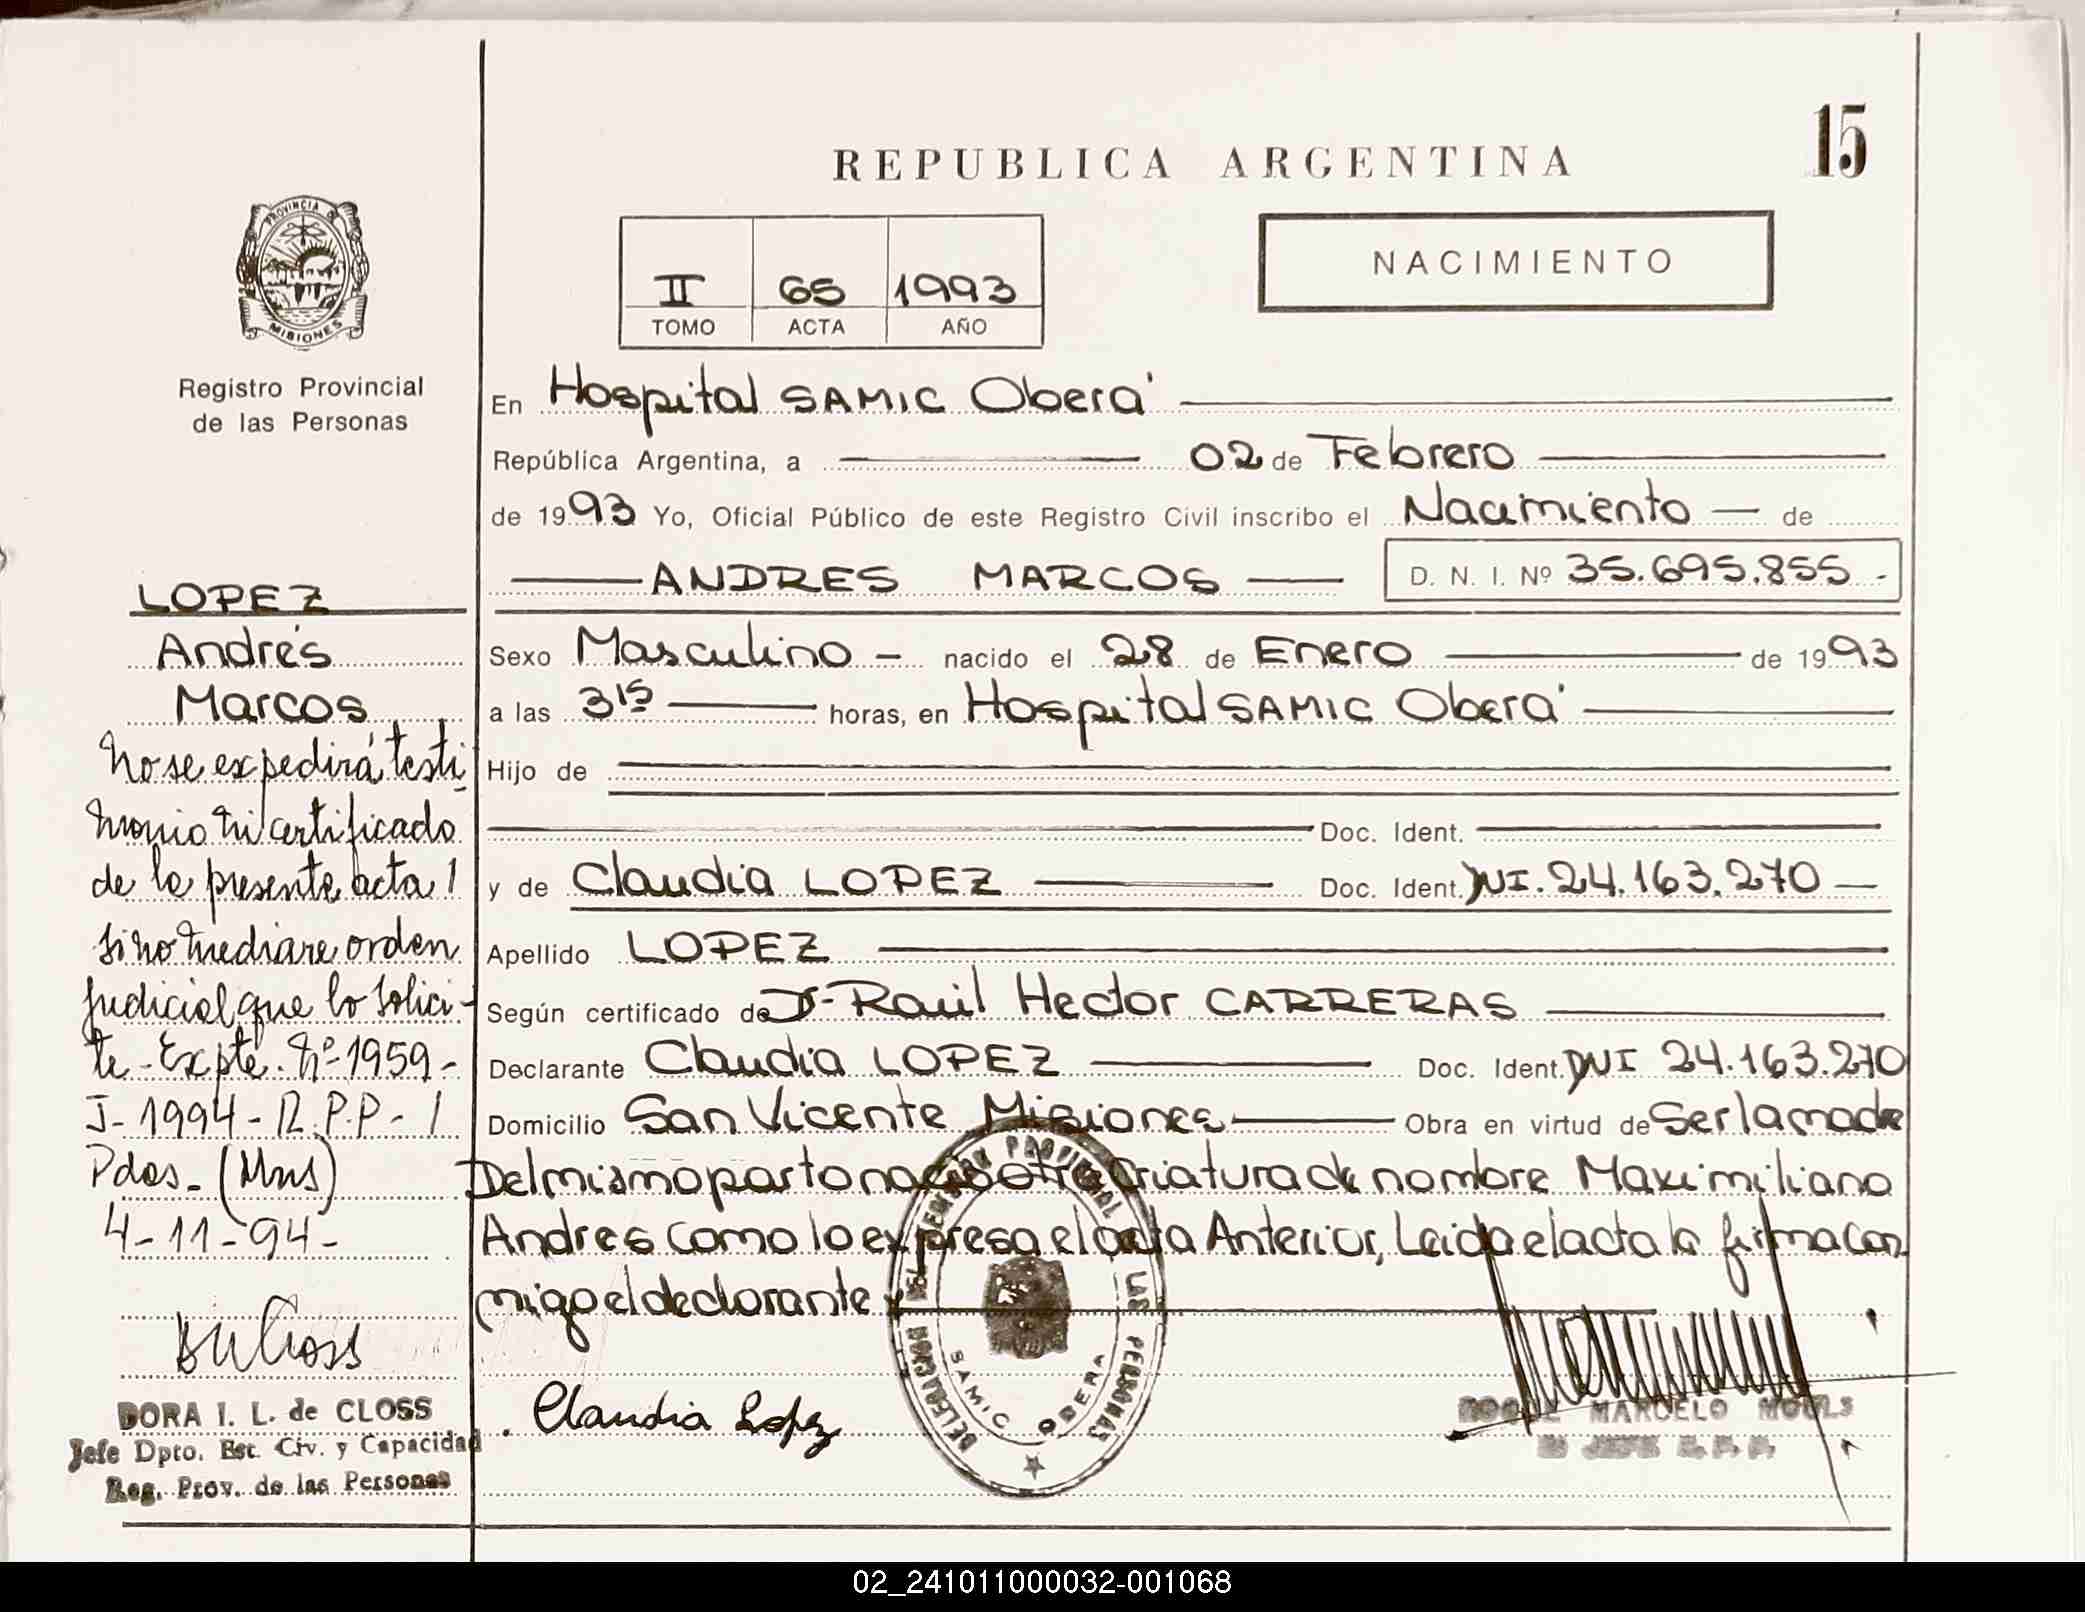 15
REPUBLICA ARGENTINA
PROVINCIA DE
MISIONES
Registro Provincial
de las Personas
II 65 1993
TOMO ACTA AÑO
NACIMIENTO
En Hospital SAMIC Oberá
República Argentina, a 02 de Febrero
de 1993 Yo, Oficial Público de este Registro Civil inscribo el Nacimiento — de
ANDRES MARCOS D. N. I. Nº 35.695.855.-
Sexo Masculino - nacido el 28 de Enero de 1993
a las 3 15 horas, en Hospital SAMIC Oberá
Hijo de
Doc. Ident.
y de Claudia LOPEZ Doc. Ident. DNI. 24.163.270
Apellido LOPEZ
Según certificado de Dr. Raúl Hector CARRERAS
Declarante Claudia LOPEZ Doc. Ident. DNI 24.163.270
Domicilio San Vicente Misiones Obra en virtud de Ser la madre
Del mismo parto nació otra criatura de nombre Maximiliano
Andres como lo expresa el acta Anterior, Leida el acta la firma con
migo el declarante
LOPEZ
Andrés
Marcos
No se expedirá testi
monio ni certificado
de la presente acta
si no mediare orden
judicial que lo solici-
te - Expte. Nº 1959-
J- 1994 - R.P.P -
Pdas - (Mns)
4-11-94-
DORA I. L. de CLOSS
Jefe Dpto. Est. Civ. y Capacidad
Reg. Prov. de las Personas
Claudia Lopez
PROVINCIAL
LAS PERSONAS
SAMIC OBERA
MARCELO
02_241011000032-001068